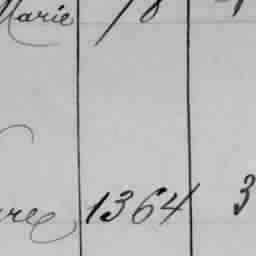 Marie 18
1364 3